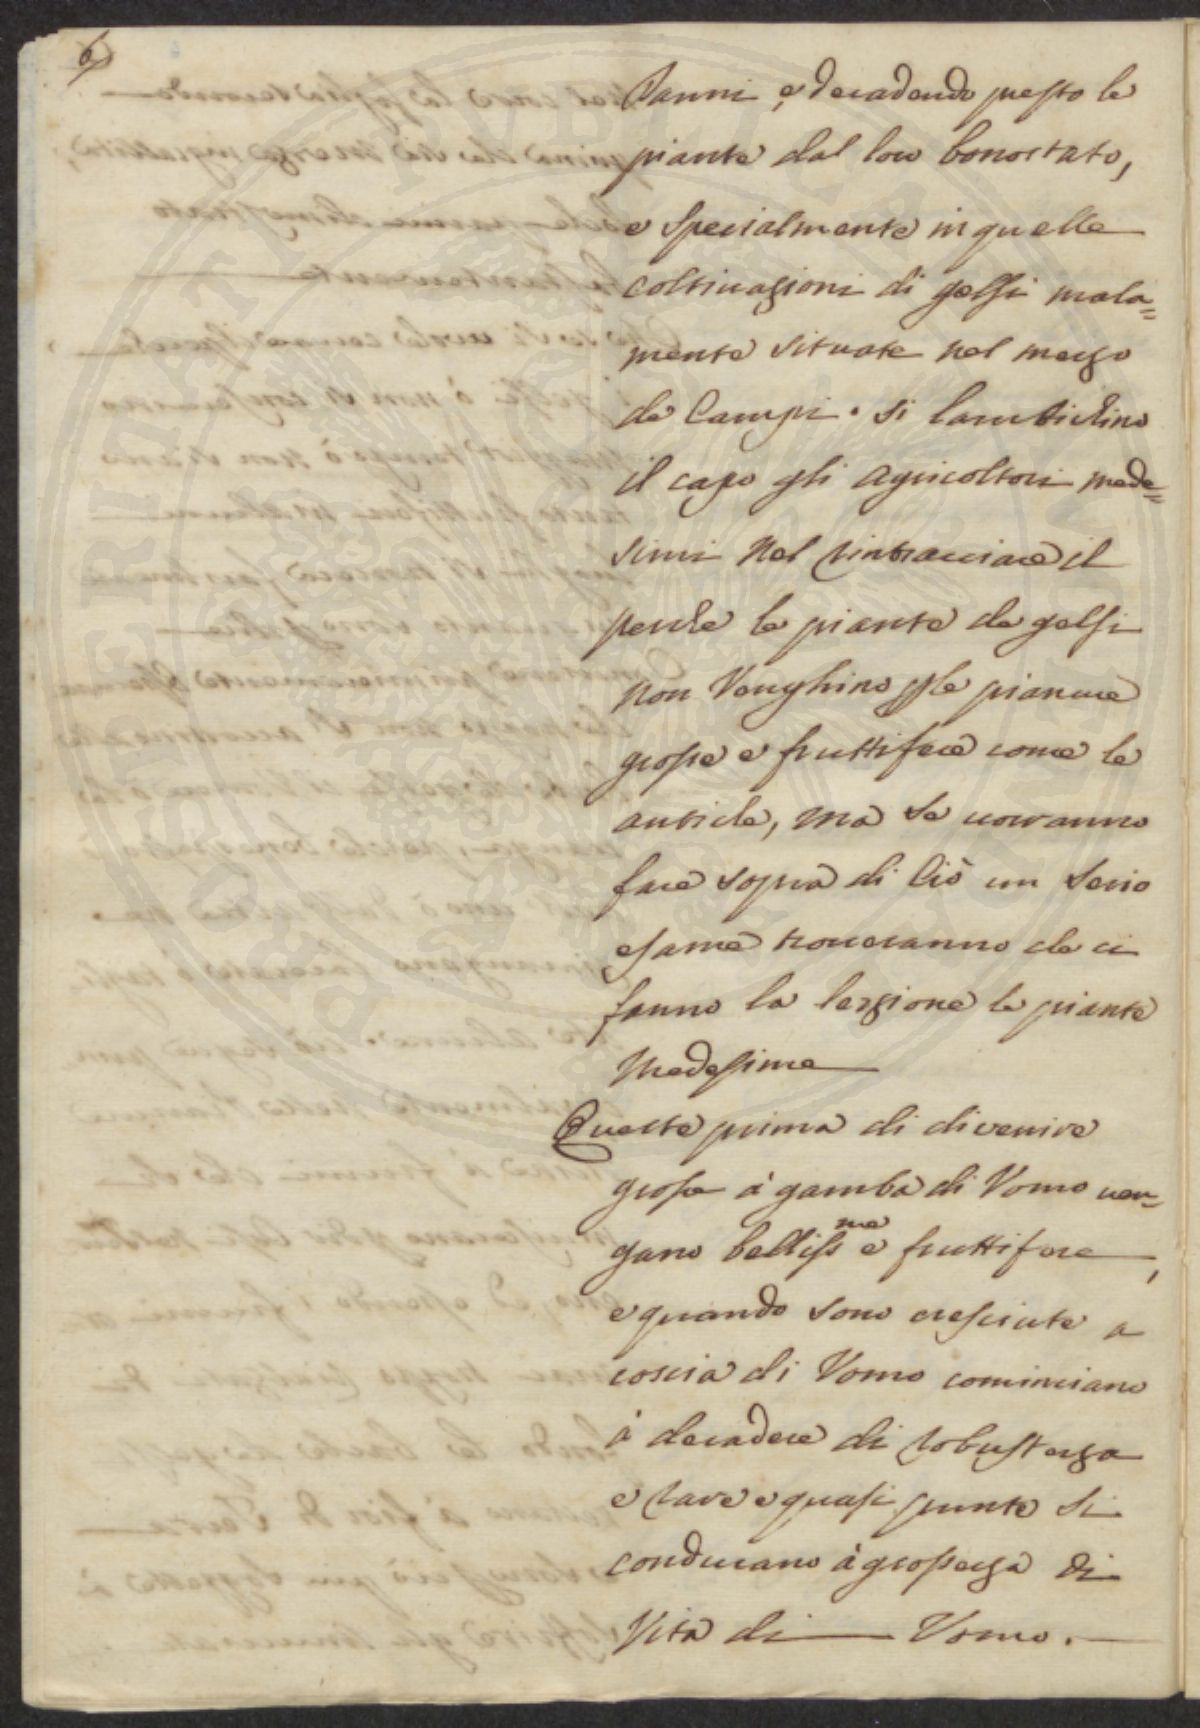 6
Danni, e decadendo presto le
piante dal loro bono stato,
e specialmente in quelle
coltivazioni di gelsi mala=
mente situate nel mezzo
de Campi. Si lambichino
il capo gli agricoltori mede=
simi nel rintracciare il
perche le piante de gelsi
non Venghino p le pianure
grosse e fruttifere come le
antiche, ma se vorranno
fare sopra di Ciò un serio
esame troveranno che ci
fanno la lezzione le piante
Medesime
Queste prima di divenire
grosse à gamba di Vomo ven=
gano belliss.me e fruttifere,
e quando sono cresciute a
coscia di Vomo cominciano
à decadere di robustezza
e rare e quasi punte si
conducano à grossezza di
Vita di Vomo.
PROSPERITATI PVBLICAE